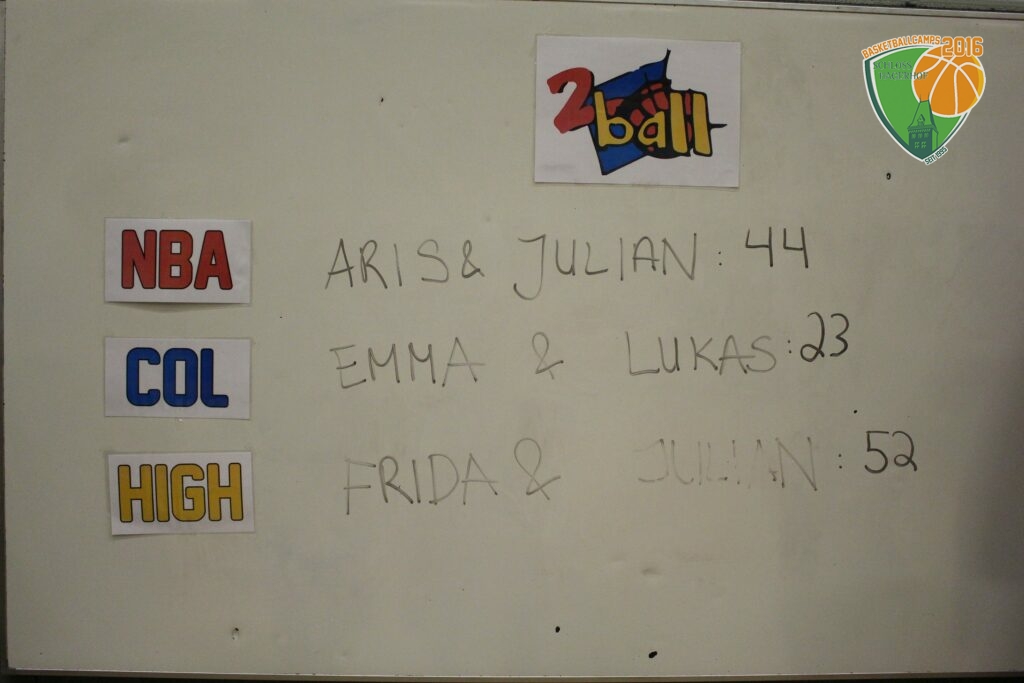 BASKETBALLCAMPS 2016
2ball
NBA ARIS & JULIAN: 44
COL EMMA & LUKAS: 23
HIGH FRIDA & JULIAN: 52